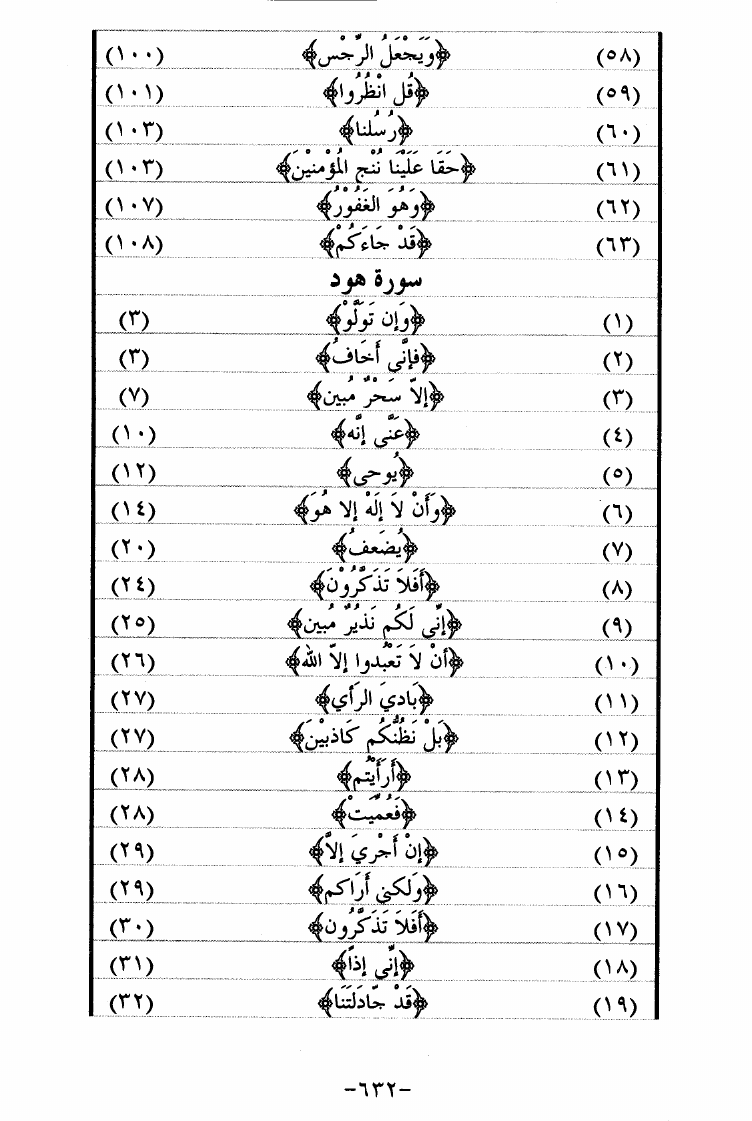 (٥٨) ﴿وَيَجْعَلُ الرِّجْس﴾ (١٠٠)
(٥٩) ﴿قُل انْظُرُوا﴾ (١٠١)
(٦٠) ﴿رُسُلنا﴾ (١٠٣)
(٦١) ﴿حَقا عَلَيْنَا نُنْج المُؤْمنيْنَ﴾ (١٠٣)
(٦٢) ﴿وَهُوَ الغَفُوْرُ﴾ (١٠٧)
(٦٣) ﴿قَدْ جَاءَكُمْ﴾ (١٠٨)
سورة هود
(١) ﴿وَإن تَوَلَّوْ﴾ (٣)
(٢) ﴿فإنَّي أَخَافُ﴾ (٣)
(٣) ﴿إلاّ سَحْرٌ مُبين﴾ (٧)
(٤) ﴿عَنَّي إنَّه﴾ (١٠)
(٥) ﴿يُوحى﴾ (١٢)
(٦) ﴿وَأَنْ لاَ إلَهْ إلا هُوَ﴾ (١٤)
(٧) ﴿يُضَعفُ﴾ (٢٠)
(٨) ﴿أَفَلاَ تَذَكَّرُوْنَ﴾ (٢٤)
(٩) ﴿إنِّي لَكُم نَذيُرٌ مُبين﴾ (٢٥)
(١٠) ﴿أنْ لاَ تَعْبُدوا إلاّ الله﴾ (٢٦)
(١١) ﴿بَاديَ الرَأي﴾ (٢٧)
(١٢) ﴿بَلْ نَظُنُّكُم كَاذبيْنَ﴾ (٢٧)
(١٣) ﴿أَرَأَيْتُم﴾ (٢٨)
(١٤) ﴿فَعُمِّيَتْ﴾ (٢٨)
(١٥) ﴿إنْ أَجْريَ إلاَّ﴾ (٢٩)
(١٦) ﴿وَلَكني أَرَاكم﴾ (٢٩)
(١٧) ﴿أَفَلاَ تَذَكَّرُون﴾ (٣٠)
(١٨) ﴿إنِّي إذاً﴾ (٣١)
(١٩) ﴿قَدْ جّادَلَتَنَا﴾ (٣٢)
-٦٣٢-